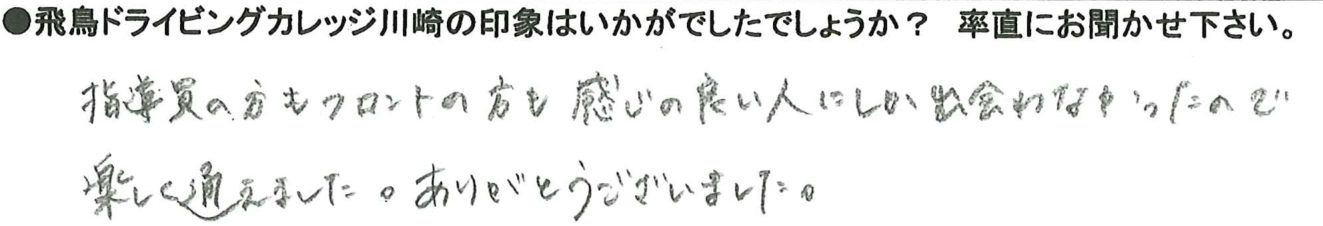 ●飛鳥ドライビングカレッジ川崎の印象はいかがでしたでしょうか？ 率直にお聞かせ下さい。
指導員の方もフロントの方も感じの良い人にしか出会わなかったので
楽しく通えました。ありがとうございました。